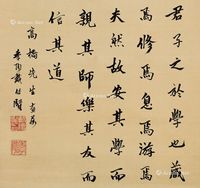 君子之於學也藏
焉修焉息焉游焉
夫然故安其學而
親其師樂其友而
信其道
高橋先生